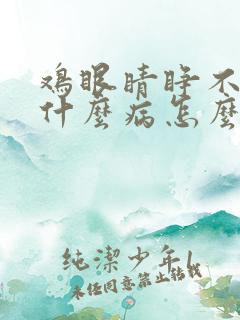 鸡眼睛睁不
什麼病怎麼
純潔少年l
未经同意禁止转载